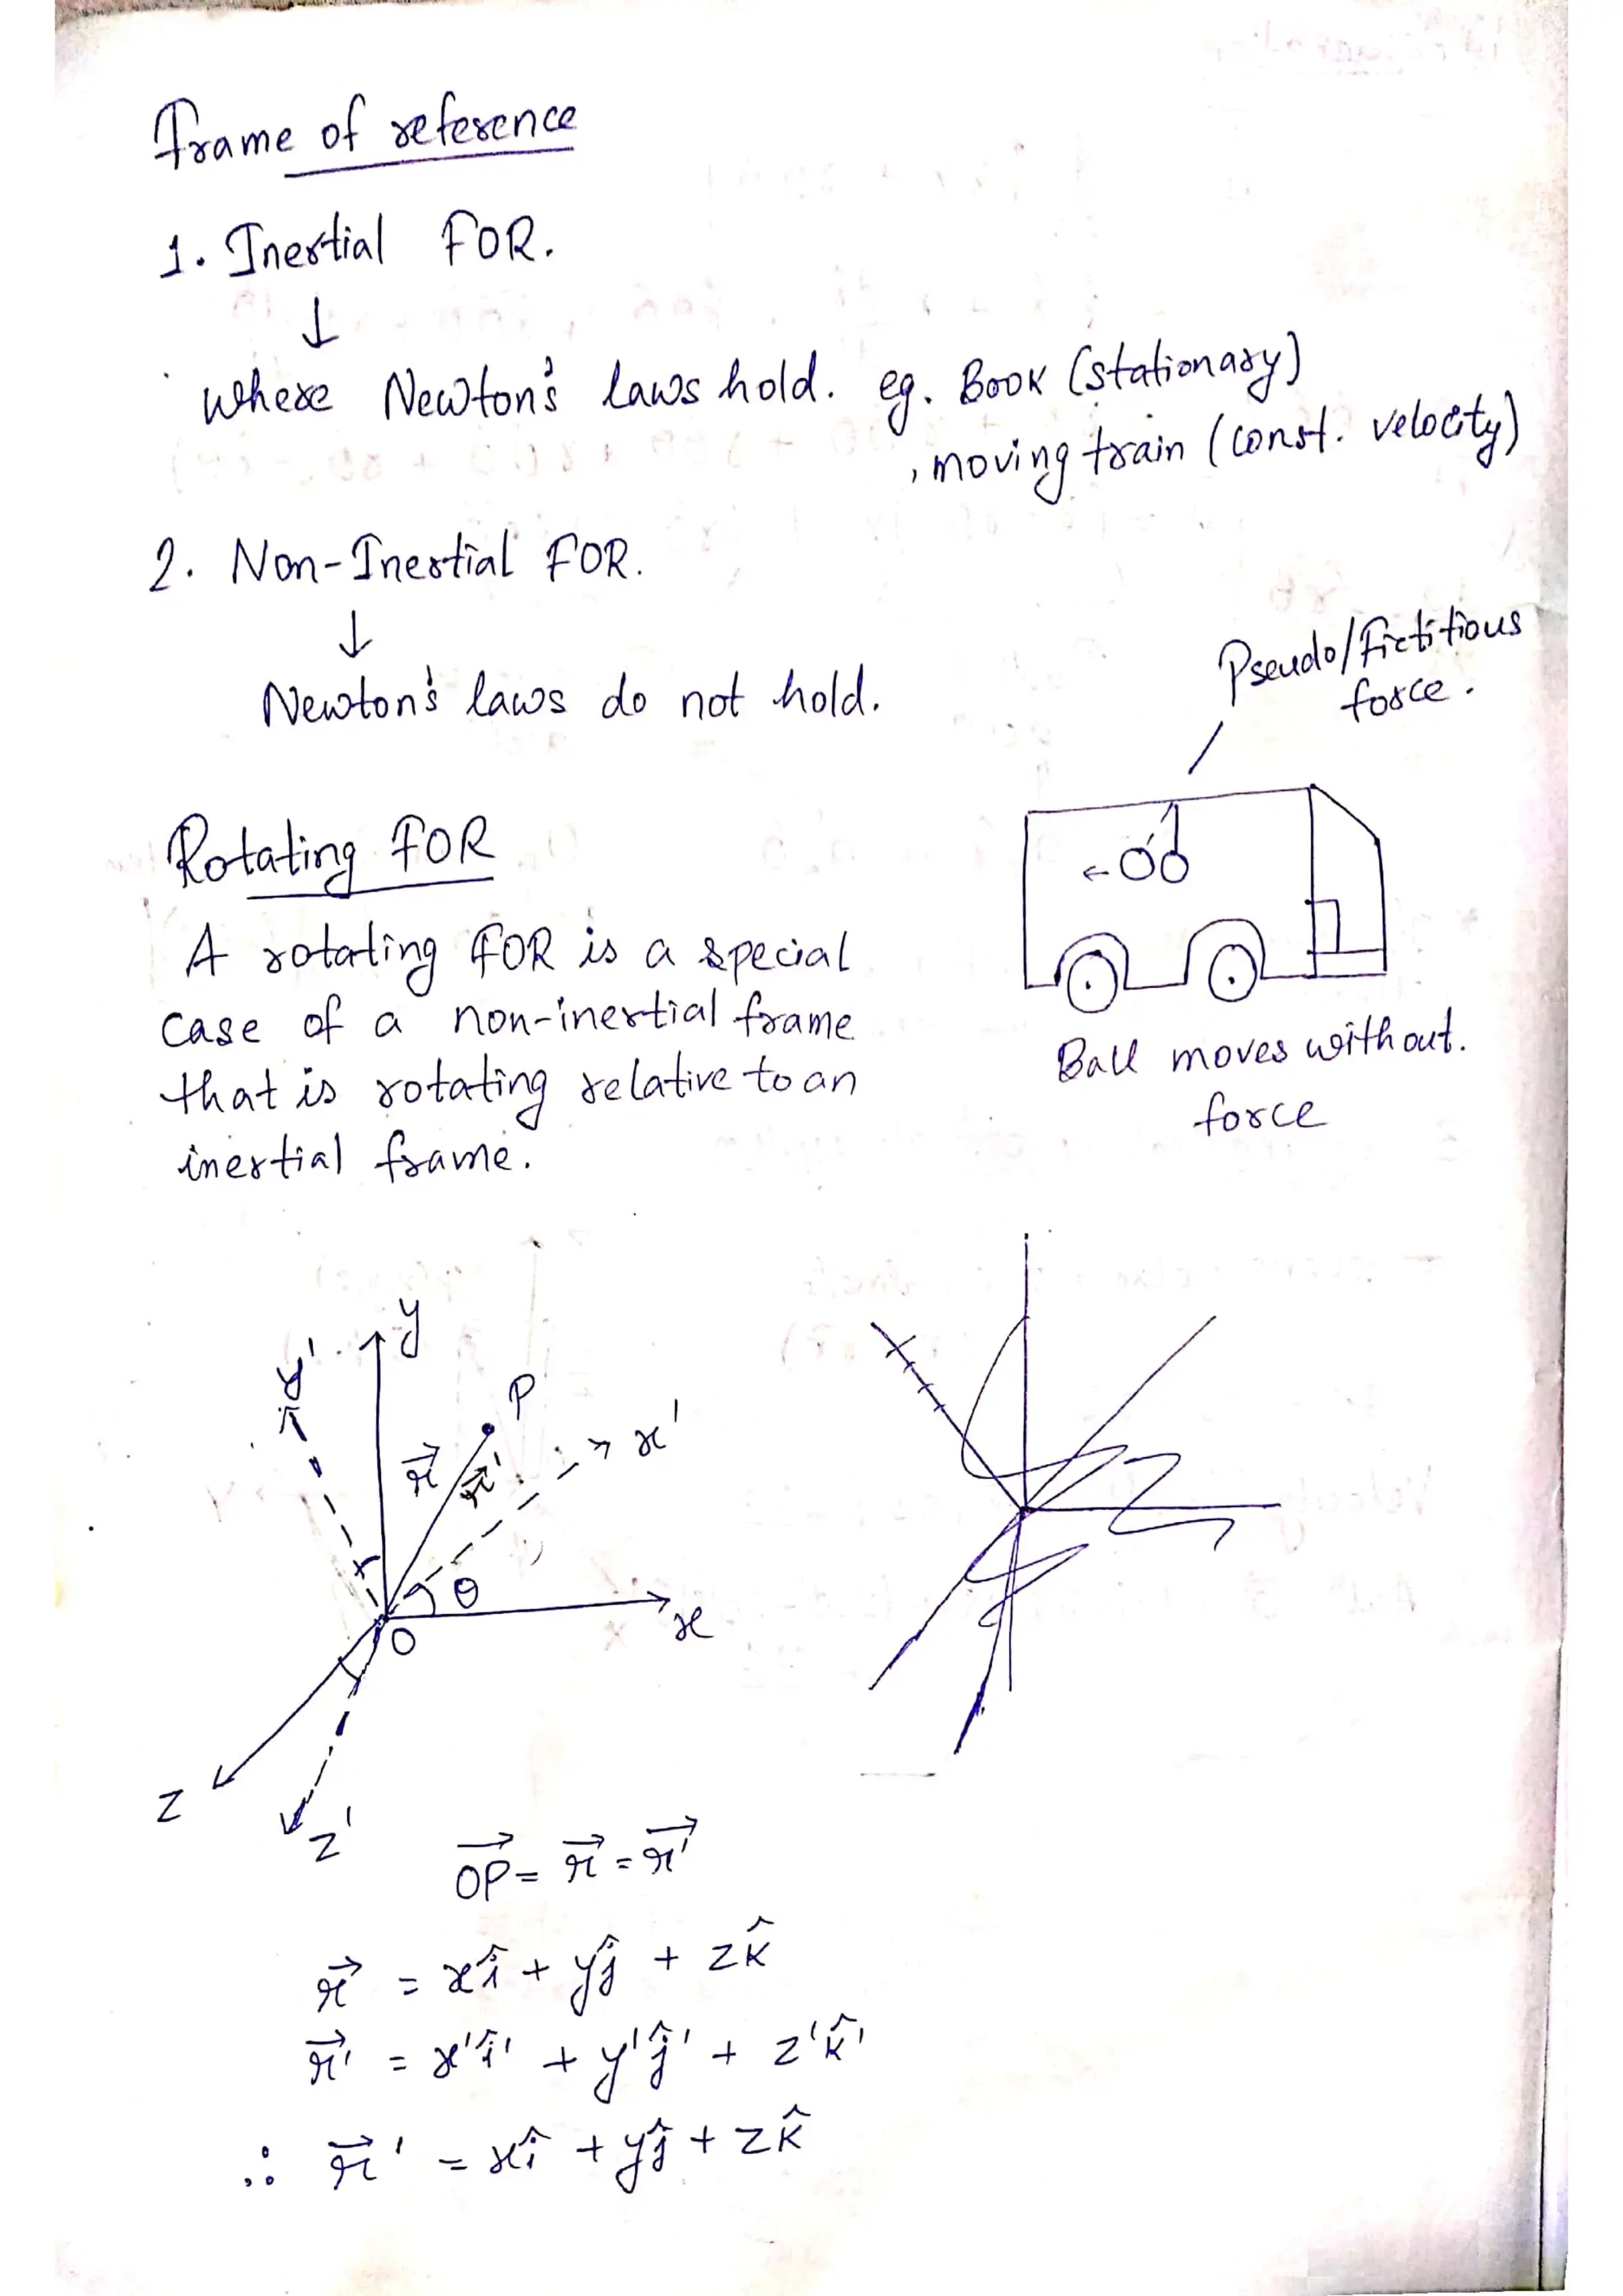 Frame of reference
1. Inertial FOR.
↓
where Newton's laws hold. eg. Book (stationary)
, moving train (const. velocity)
2. Non-Inertial FOR.
↓
Newton's laws do not hold.
Pseudo/Fictitious
force.
Rotating FOR
A rotating FOR is a special
case of a non-inertial frame
that is rotating relative to an
inertial frame.
Ball moves without.
force
y
y'
P
x'
r⃗
r⃗'
θ
x
O
z
z'
OP⃗ = r⃗ = r⃗'
r⃗ = xî + yĵ + zk̂
r⃗' = x'î' + y'ĵ' + z'k̂'
∴ r⃗' = xî + yĵ + zk̂